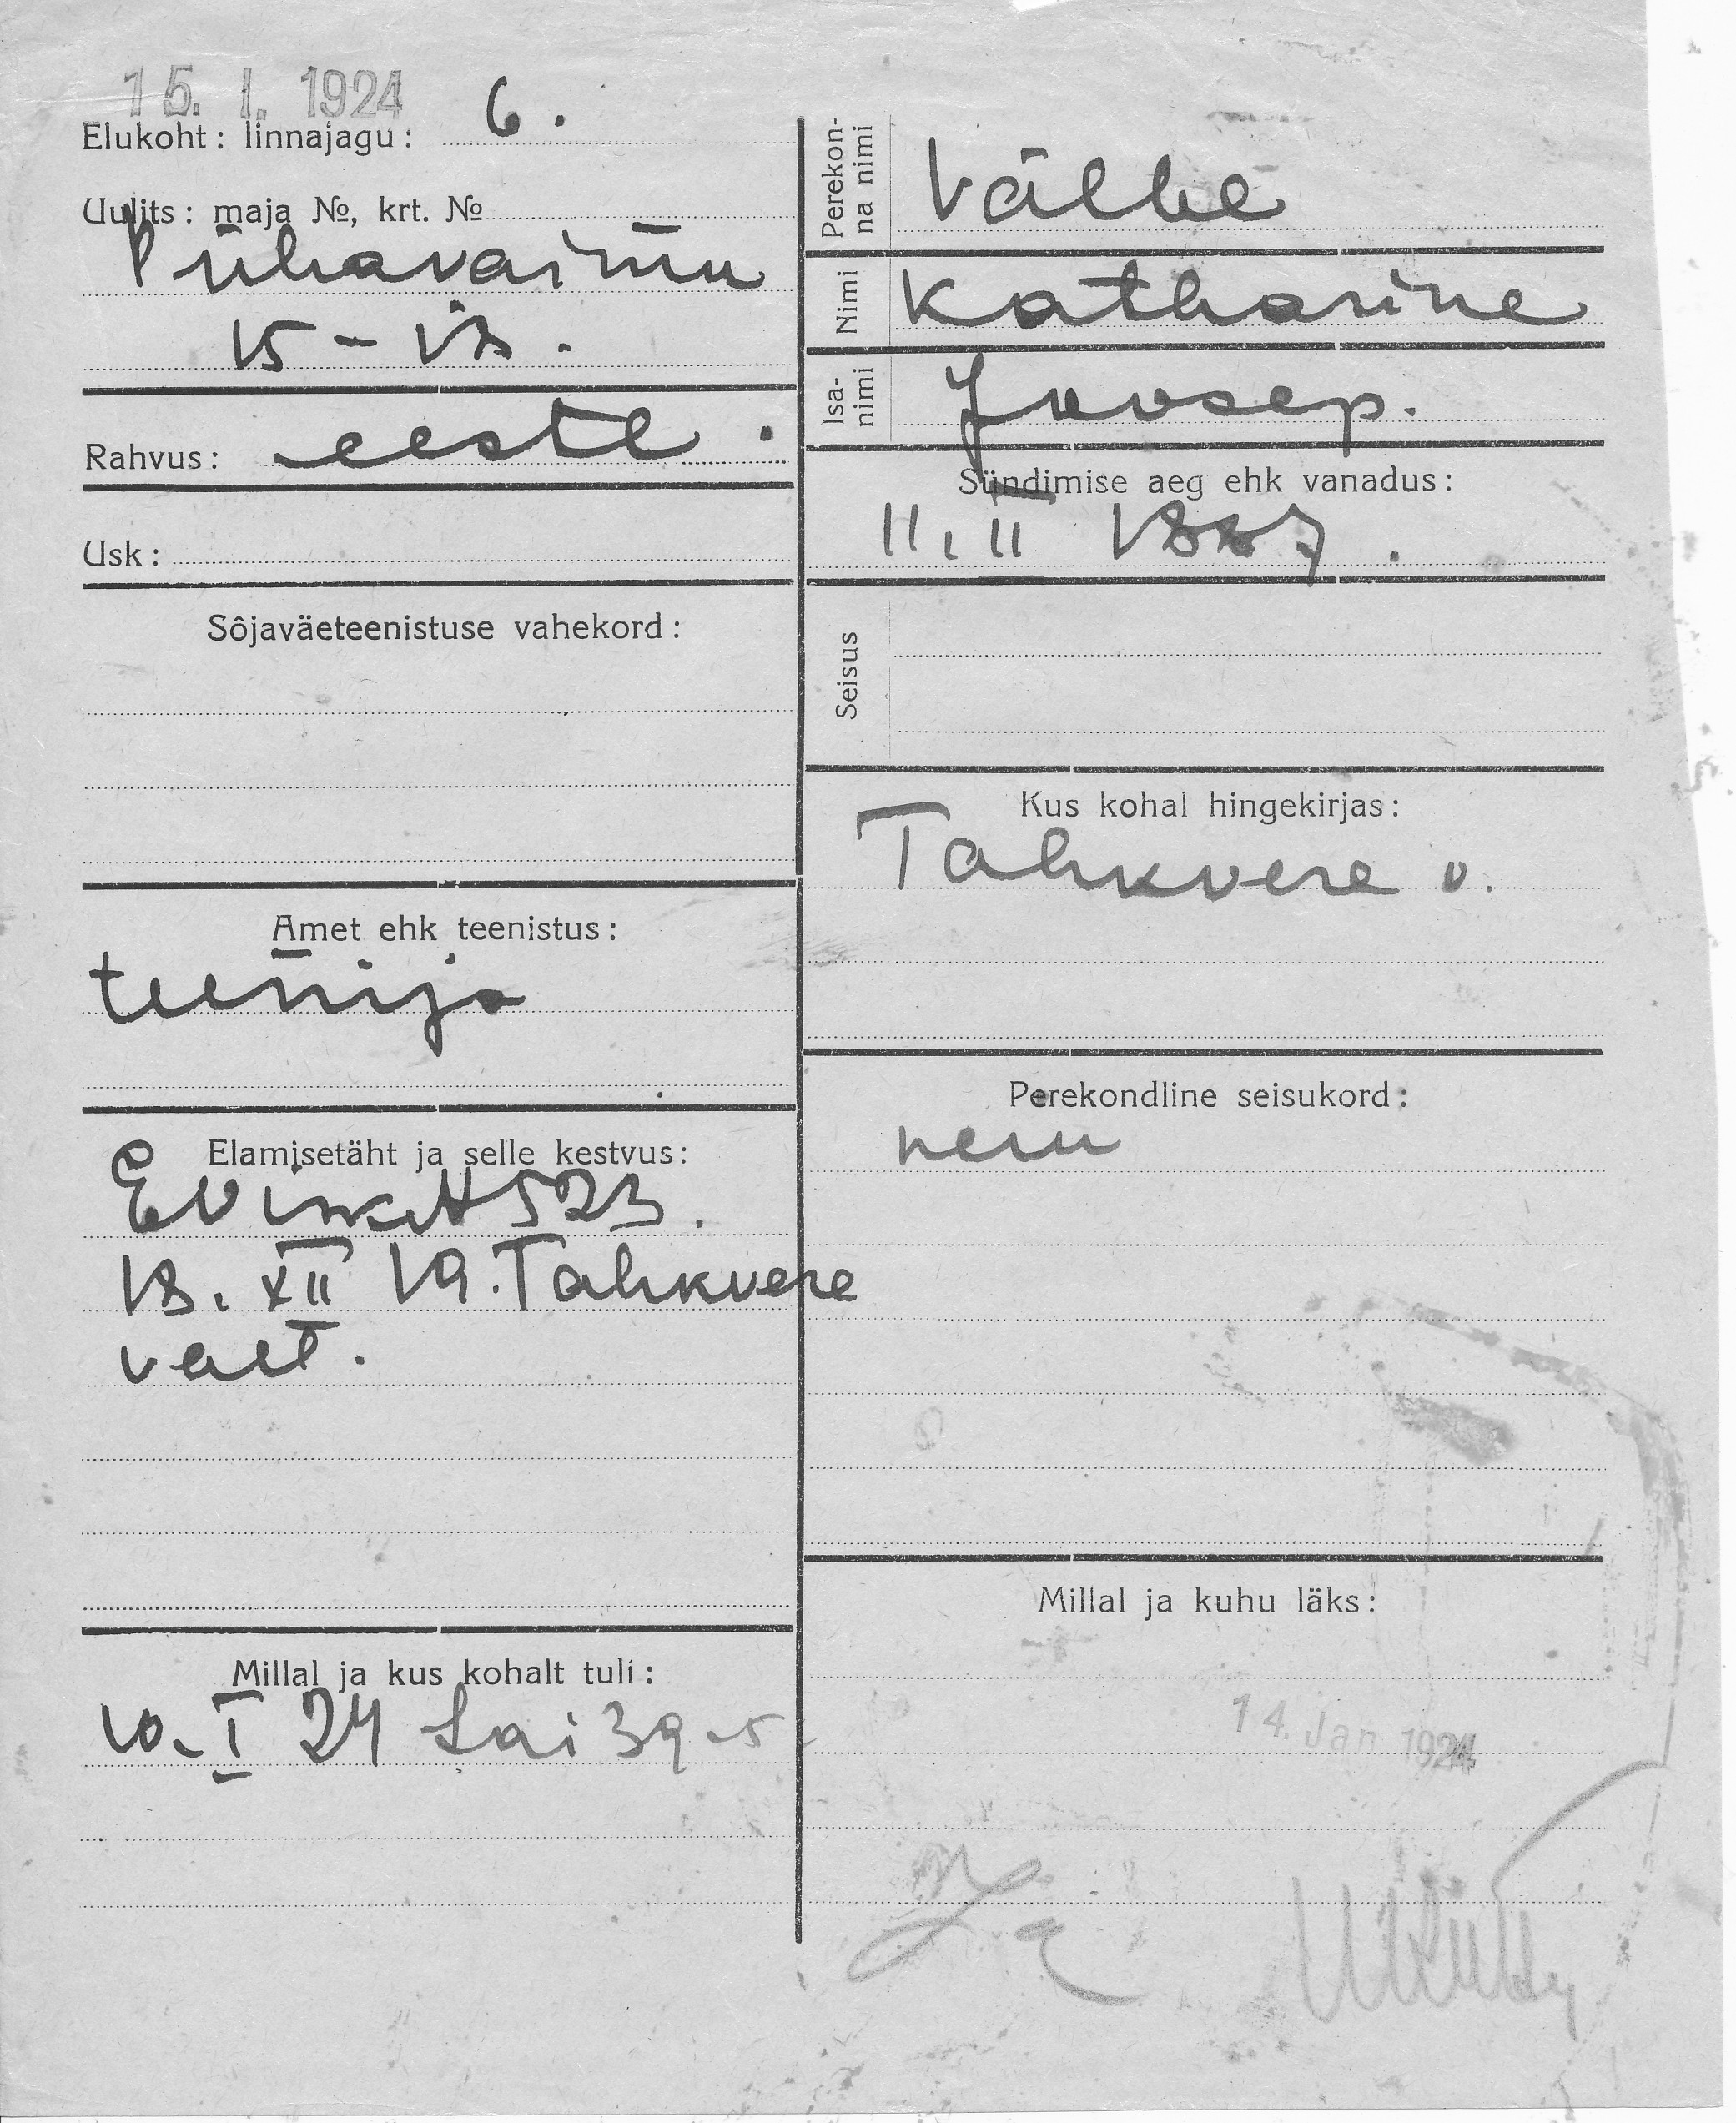 15. I. 1924
Elukoht: linnajagu: 6.
Uulits: maja №, krt. №
Pühavaimu
15 - 18.
Rahvus: eestl.
Usk:
Sôjaväeteenistuse vahekord:
Amet ehk teenistus:
teenija
Elamisetäht ja selle kestvus:
523.
18. XII 19. Tahkvere
valt.
Millal ja kus kohalt tuli:
10. I 24 Lai 39-5
Perekon-
na nimi
Välbe
Nimi Katharine
Isa-
nimi
Juosep.
Sündimise aeg ehk vanadus:
11. II 1887.
Seisus
Kus kohal hingekirjas:
Tahkvere v.
Perekondline seisukord:
Millal ja kuhu läks:
14. Jan 1924